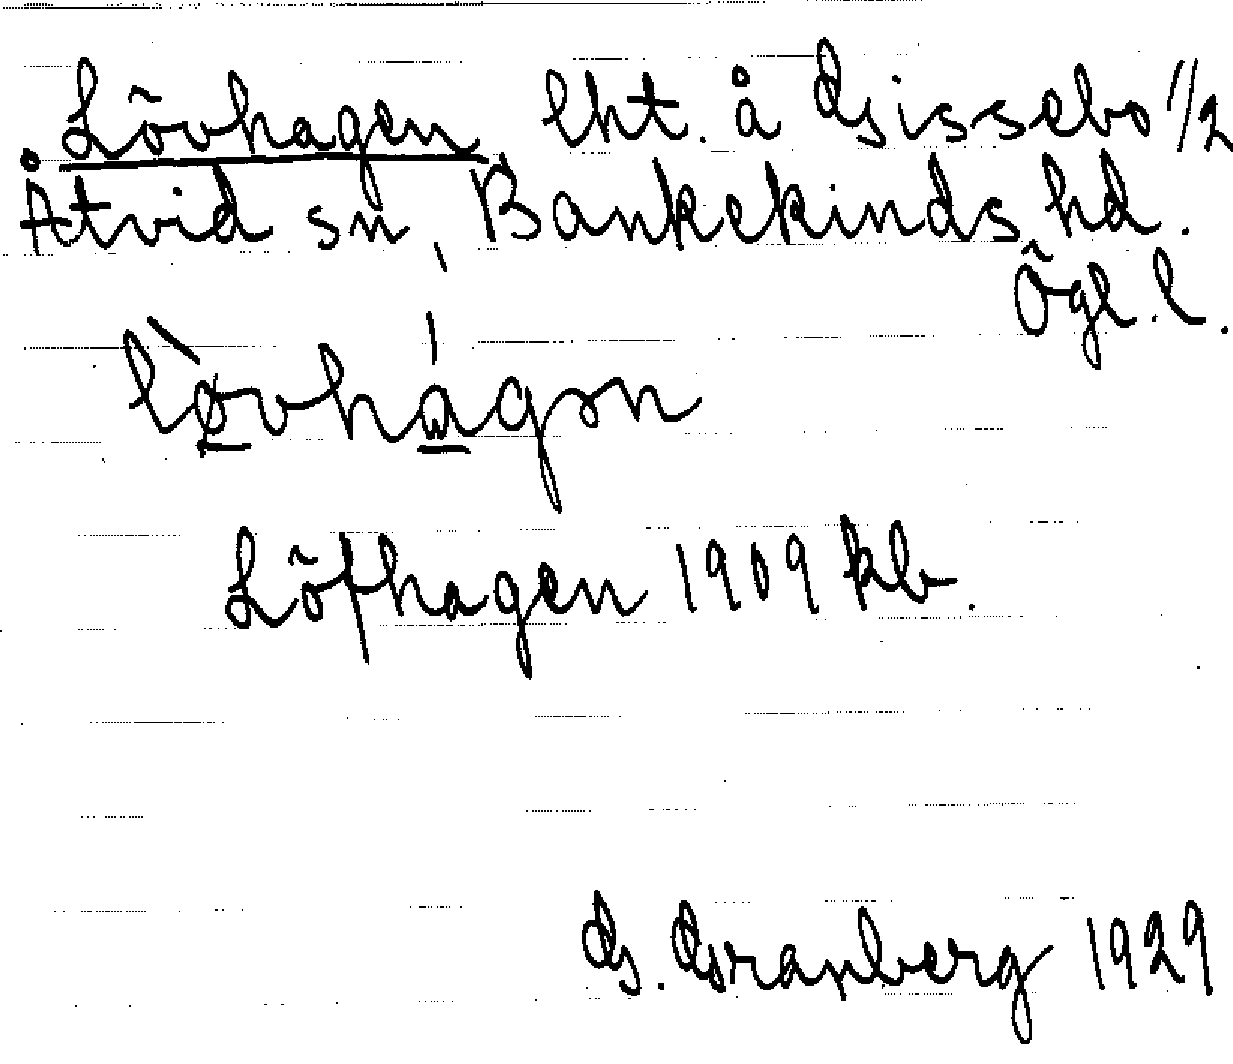 Lövhagen lht. å Gissebo 1/2
Åtvid sn, Bankekinds hd.
Ögl. l.
lø̀vhágən
Löfhagen 1909 kb.
G. Granberg 1929